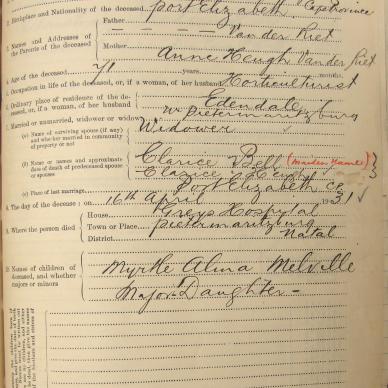 2. Birthplace and Nationality of the deceased Port Elizabeth Cape Province
3. Names and Addresses of the Parents of the deceased
Father — — — — Vander Riet
Mother Anne Heugh Vander Riet
4. Age of the deceased 71 years months.
5. Occupation in life of the deceased, or, if a woman, of her husband Horticulturist
6. Ordinary place of residence of the deceased, or, if a woman, of her husband Edendale
Pietermaritzburg
7. Married or unmarried, widower or widow Widower
(a) Name of surviving spouse (if any) and whether married in community of property or not
(b) Name or names and approximate date of death of predeceased spouse or spouses Clarice Bell (Maiden Name)
Clarice
(c) Place of last marriage Port Elizabeth C.P.
8. The day of the decease: on 16th April 1931
9. Where the person died
House Greys Hospital
Town or Place Pietermaritzburg
District Natal
10. Names of children of deceased, and whether majors or minors Myrtle Alma Melville
Major Daughter —